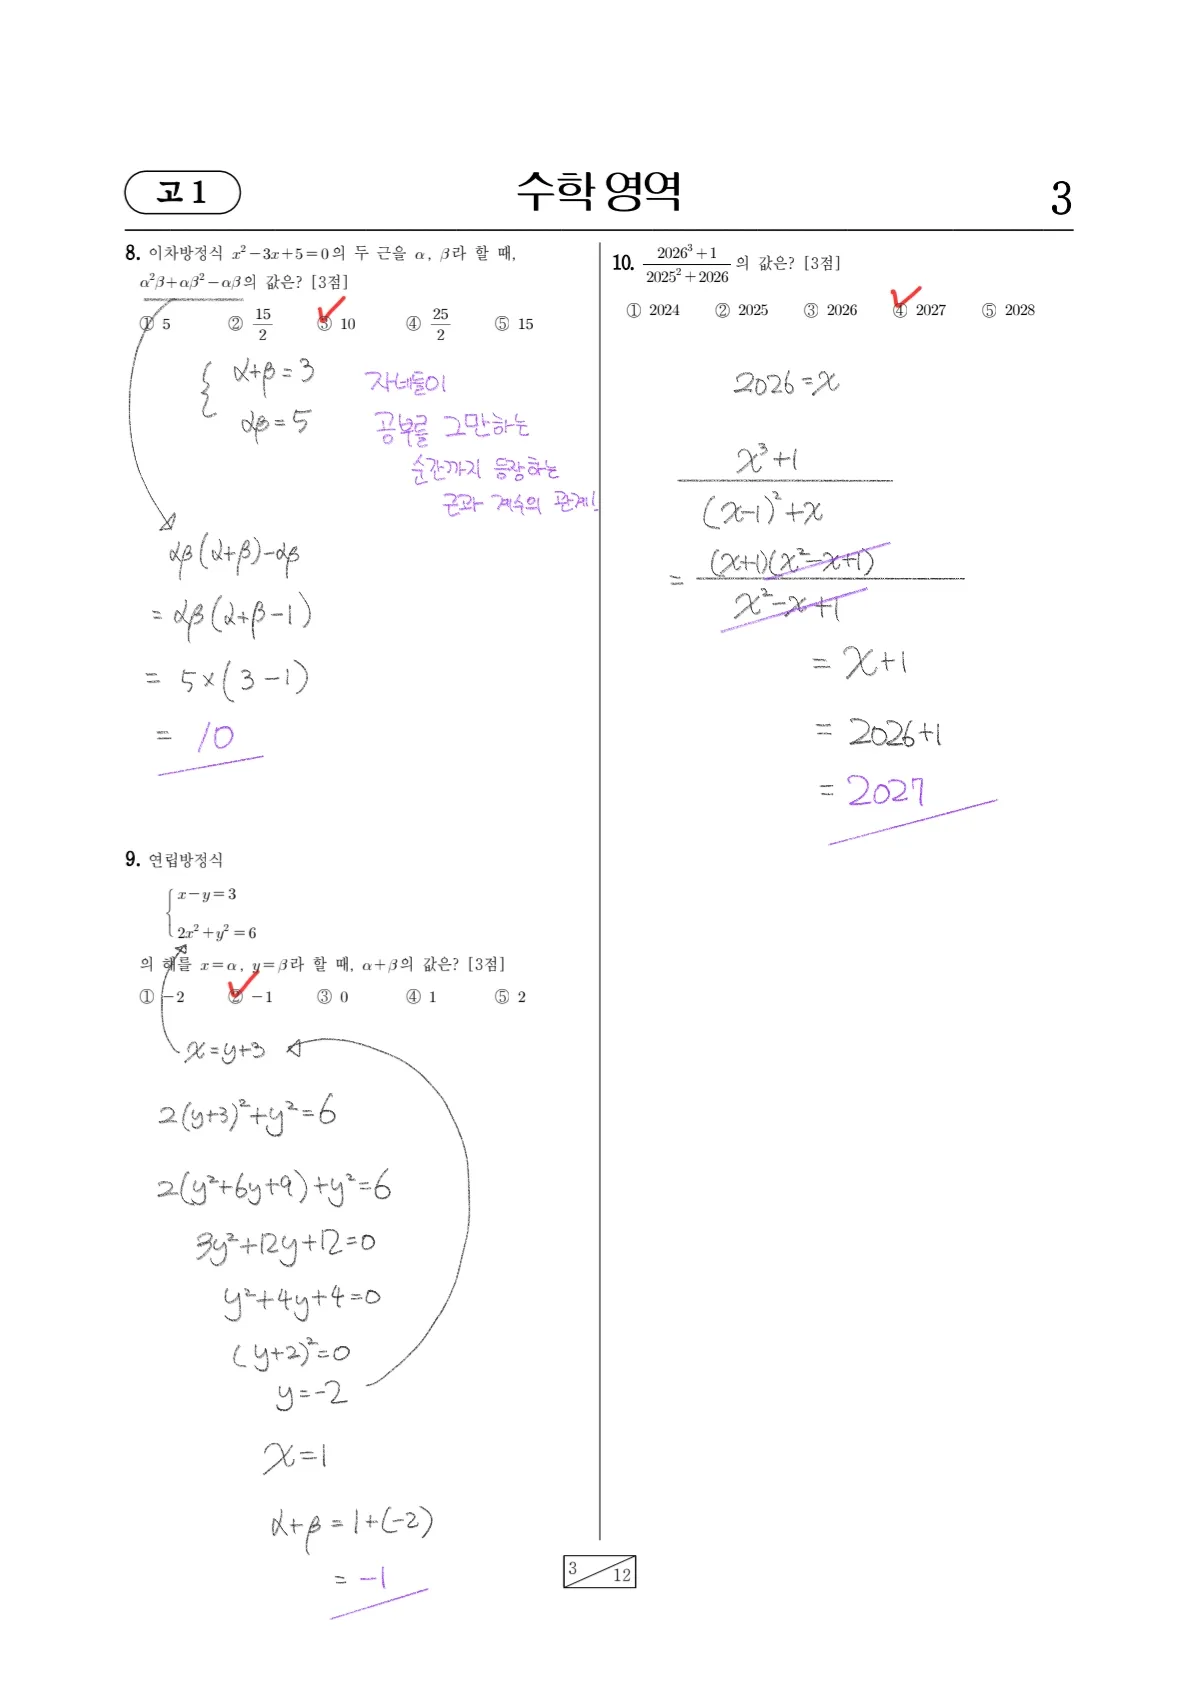 고 1
수학 영역
3
8. 이차방정식 x²−3x+5=0의 두 근을 α, β라 할 때,
α²β+αβ²−αβ의 값은? [3점]
① 5 ② 15/2 ③ 10 ④ 25/2 ⑤ 15
α+β=3
αβ=5
자네들이
공부를 그만하는
순간까지 등장하는
근과 계수의 관계!
αβ(α+β)−αβ
= αβ(α+β−1)
= 5×(3−1)
= 10
9. 연립방정식
x−y=3
2x²+y²=6
의 해를 x=α, y=β라 할 때, α+β의 값은? [3점]
① −2 ② −1 ③ 0 ④ 1 ⑤ 2
x=y+3
2(y+3)²+y²=6
2(y²+6y+9)+y²=6
3y²+12y+12=0
y²+4y+4=0
(y+2)²=0
y=−2
x=1
α+β=1+(−2)
= −1
10. (2026³+1)/(2025²+2026) 의 값은? [3점]
① 2024 ② 2025 ③ 2026 ④ 2027 ⑤ 2028
2026=x
x³+1
(x−1)²+x
= (x+1)(x²−x+1)
x²−x+1
= x+1
= 2026+1
= 2027
3
12